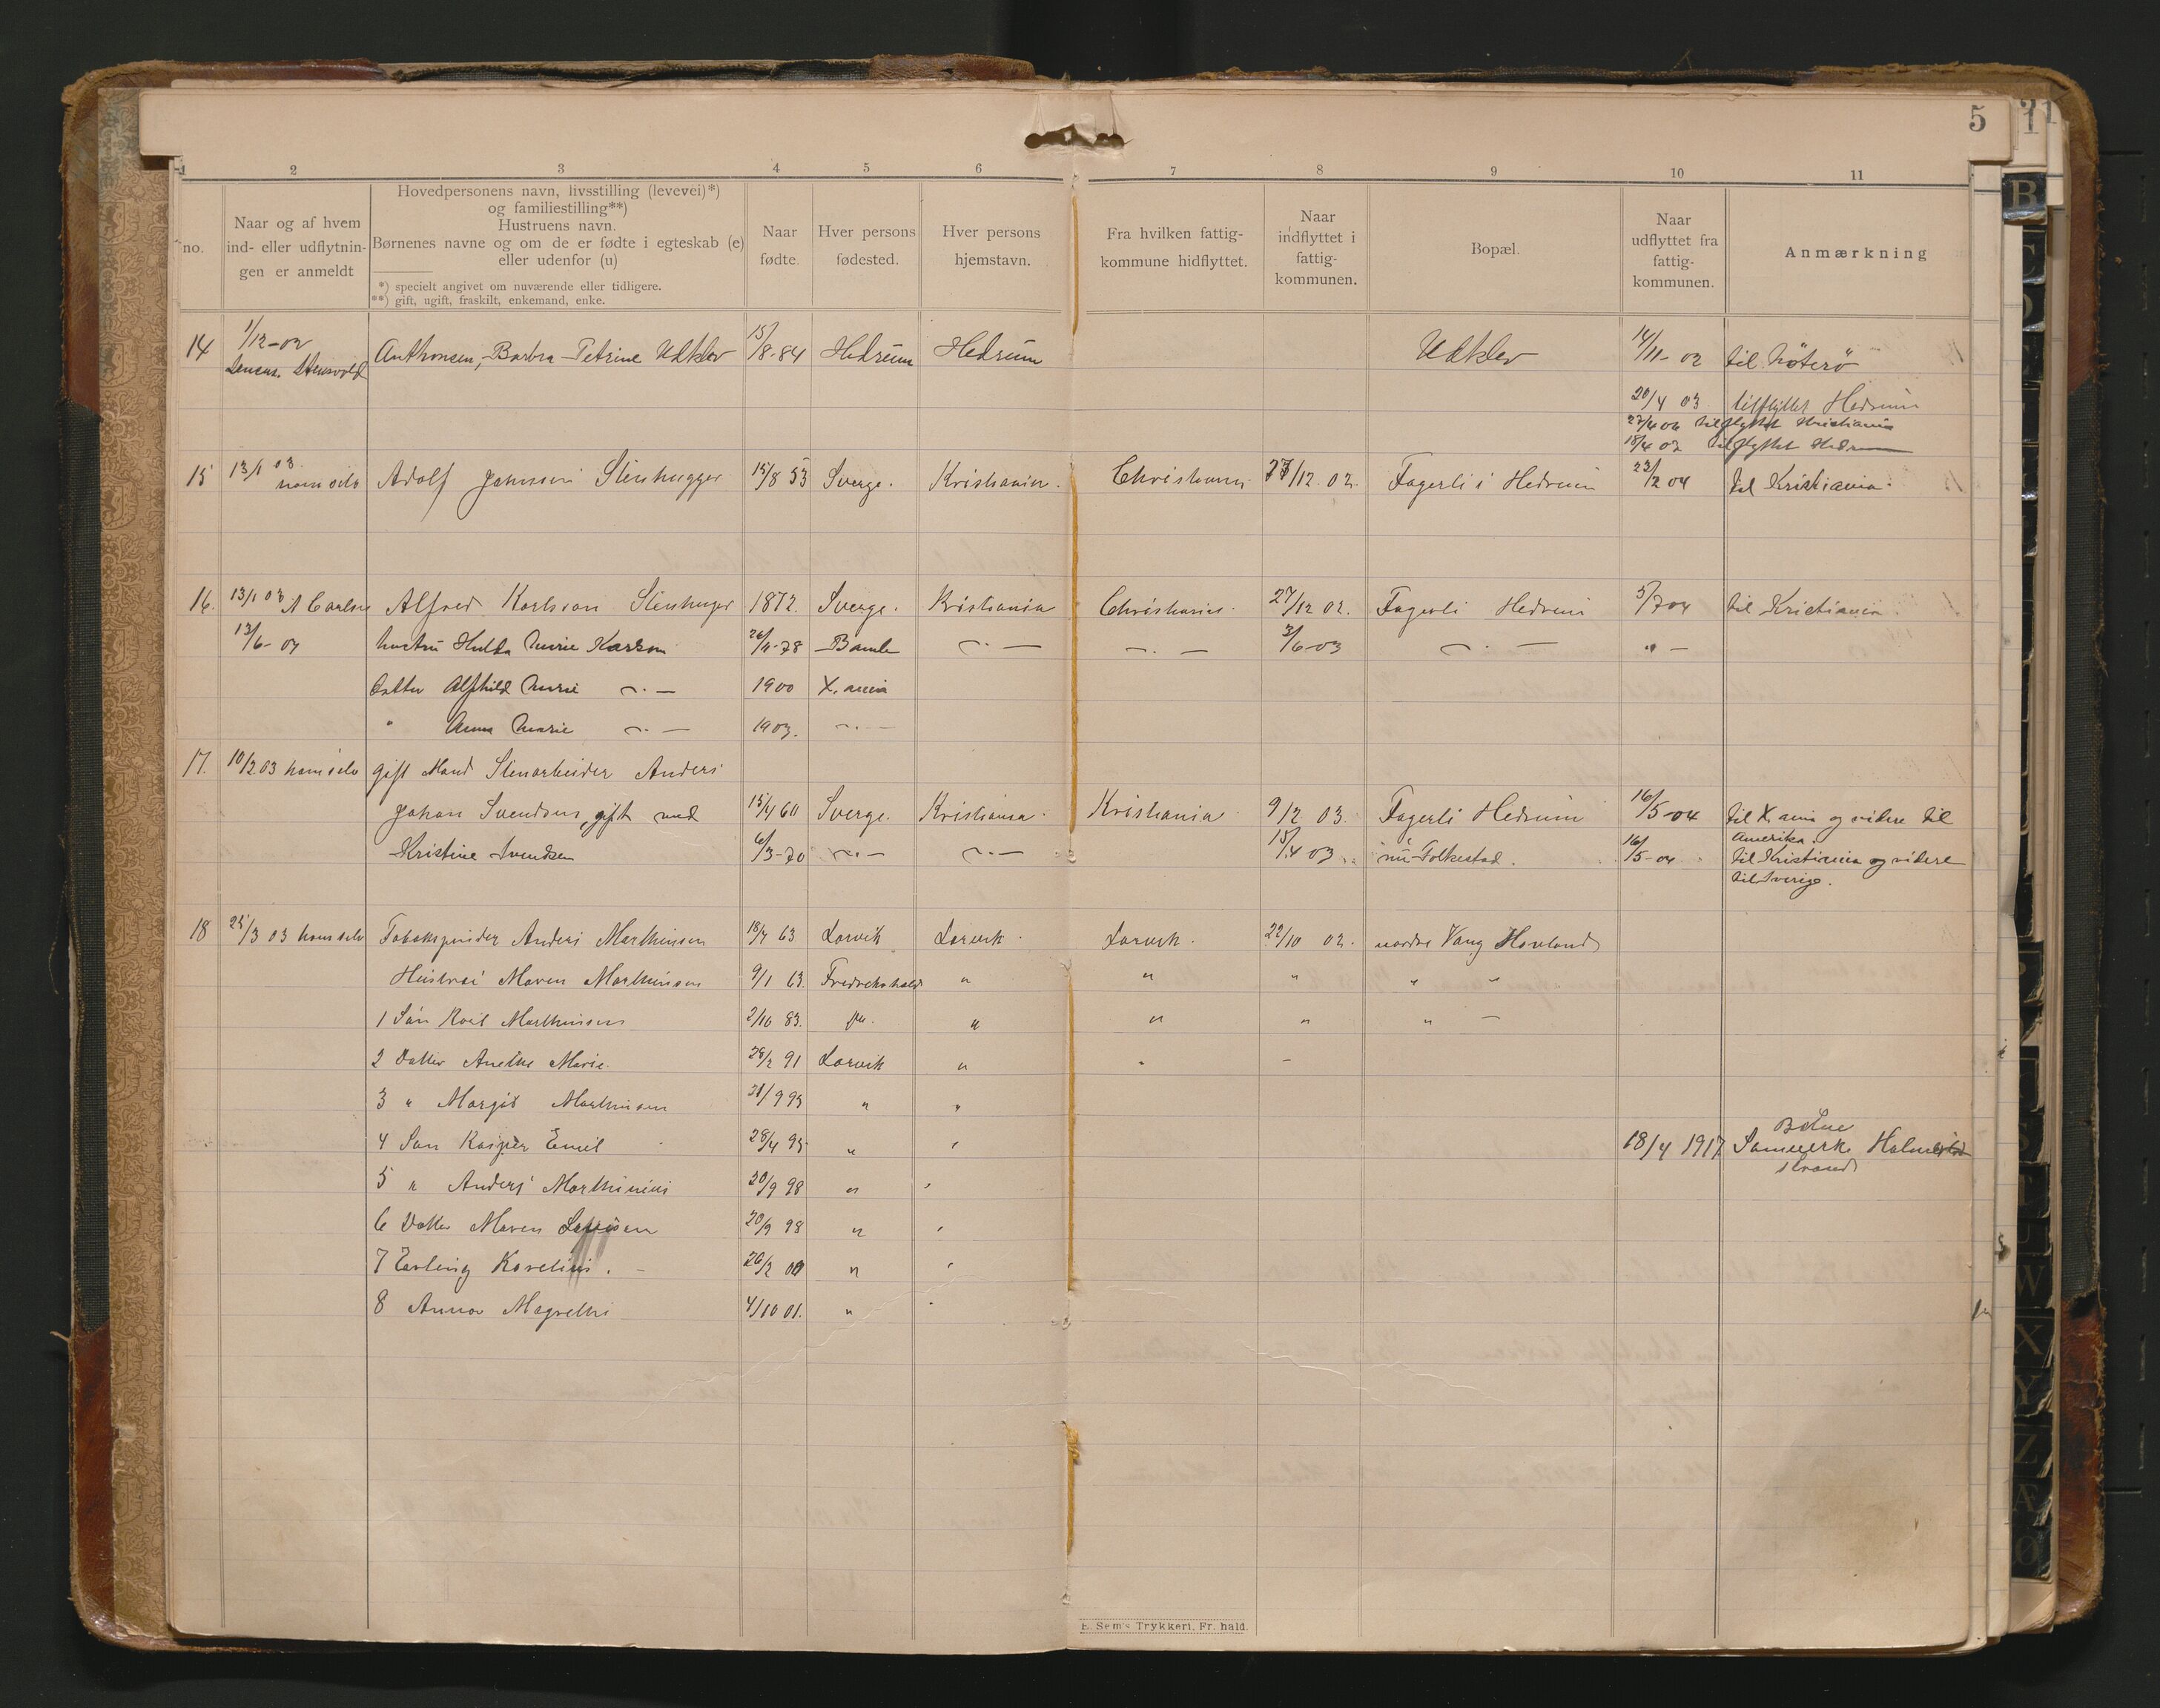 5
1 2 3 4 5 6 7 8 9 10 11
no.
Naar og af hvem
ind- eller udflytnin-
gen er anmeldt
Hovedpersonens navn, livsstilling (levevei)*)
og familiestilling**)
Hustruens navn.
Børnenes navne og om de er fødte i egteskab (e)
eller udenfor (u)
*) specielt angivet om nuværende eller tidligere.
**) gift, ugift, fraskilt, enkemand, enke.
Naar
fødte.
Hver persons
fødested.
Hver persons
hjemstavn.
Fra hvilken fattig-
kommune hidflyttet.
Naar
indflyttet i
fattig-
kommunen.
Bopæl.
Naar
udflyttet fra
fattig-
kommunen.
Anmærkning
14 1/12-02 Anthonsen, Barbra Petrine Udklev 15/8-84 Hedrum Hedrum Udklev 14/11-02 til Nöterö
20/4 03 tilflyttet Hedrum
tilflyttet Kristiania
18/4 03 tilflyttet Hedrum
15 13/1 03 ham selv Adolf Johnsson Stenhugger 15/8 53 Sverge. Kristiania. Christiania 27/12 02. Fagerli i Hedrum 23/2 04 til Kristiania.
16. 13/1 03 A Carlsen Alfred Karlsson Stenhuger 1872. Sverge. Kristiania Christiania. 27/12 02. Fagerli Hedrum 5/7 04 til Kristiania.
13/6-03 hustru Hulda Marie Karlson 26/11-78 Bamle -"- -"- 3/6-03 -"- "-
Datter Alfhild Marie -"- 1900 X.ania
" Anna Marie -"- 1903. -"-
17. 10/2 03 ham selv gift Mand Stenarbeider Anders
Johan Svendsen, gift med 15/4 60 Sverge. Kristiania. Kristiania 9/2 03. Fagerli Hedrum 16/5-04 til X.ania og videre til
Amerika.
Kristine Svendsen 6/3-70 -"- -"- 15/4 03 nu Folkestad. 16/5-04 til Kristiania og videre
til Sverige.
18 25/3 03 ham selv Tobakspinder Anders Marthinsen 18/7 63 Larvik Larvik. Larvik. 22/10 02. nordre Vang Hovland
Hustru Maren Marthinsen 9/1 63. Fredrekshald " " " " "
1 Sön Marthinsen 2/10 83. " " " " -
2 Datter Anethe Marie 28/2 91 Larvik " " -
3 " Margit Marthinsen 21/9 93 " "
4 Sön Kasper Emil 28/4 95 " " 18/4 1917 Botne
Holme
strand
5 " Anders Marthinius 20/9 98 " "
6 Datter Maren 20/9 98 " "
7 Erling Karelius. 26/2 00 " "
8 Anna Magrethe 4/10 01. " "
E. Sem's Trykkeri, Fr. hald.
B
C
D
E
S
T
U
W
X
Y
Z
Æ
Ø